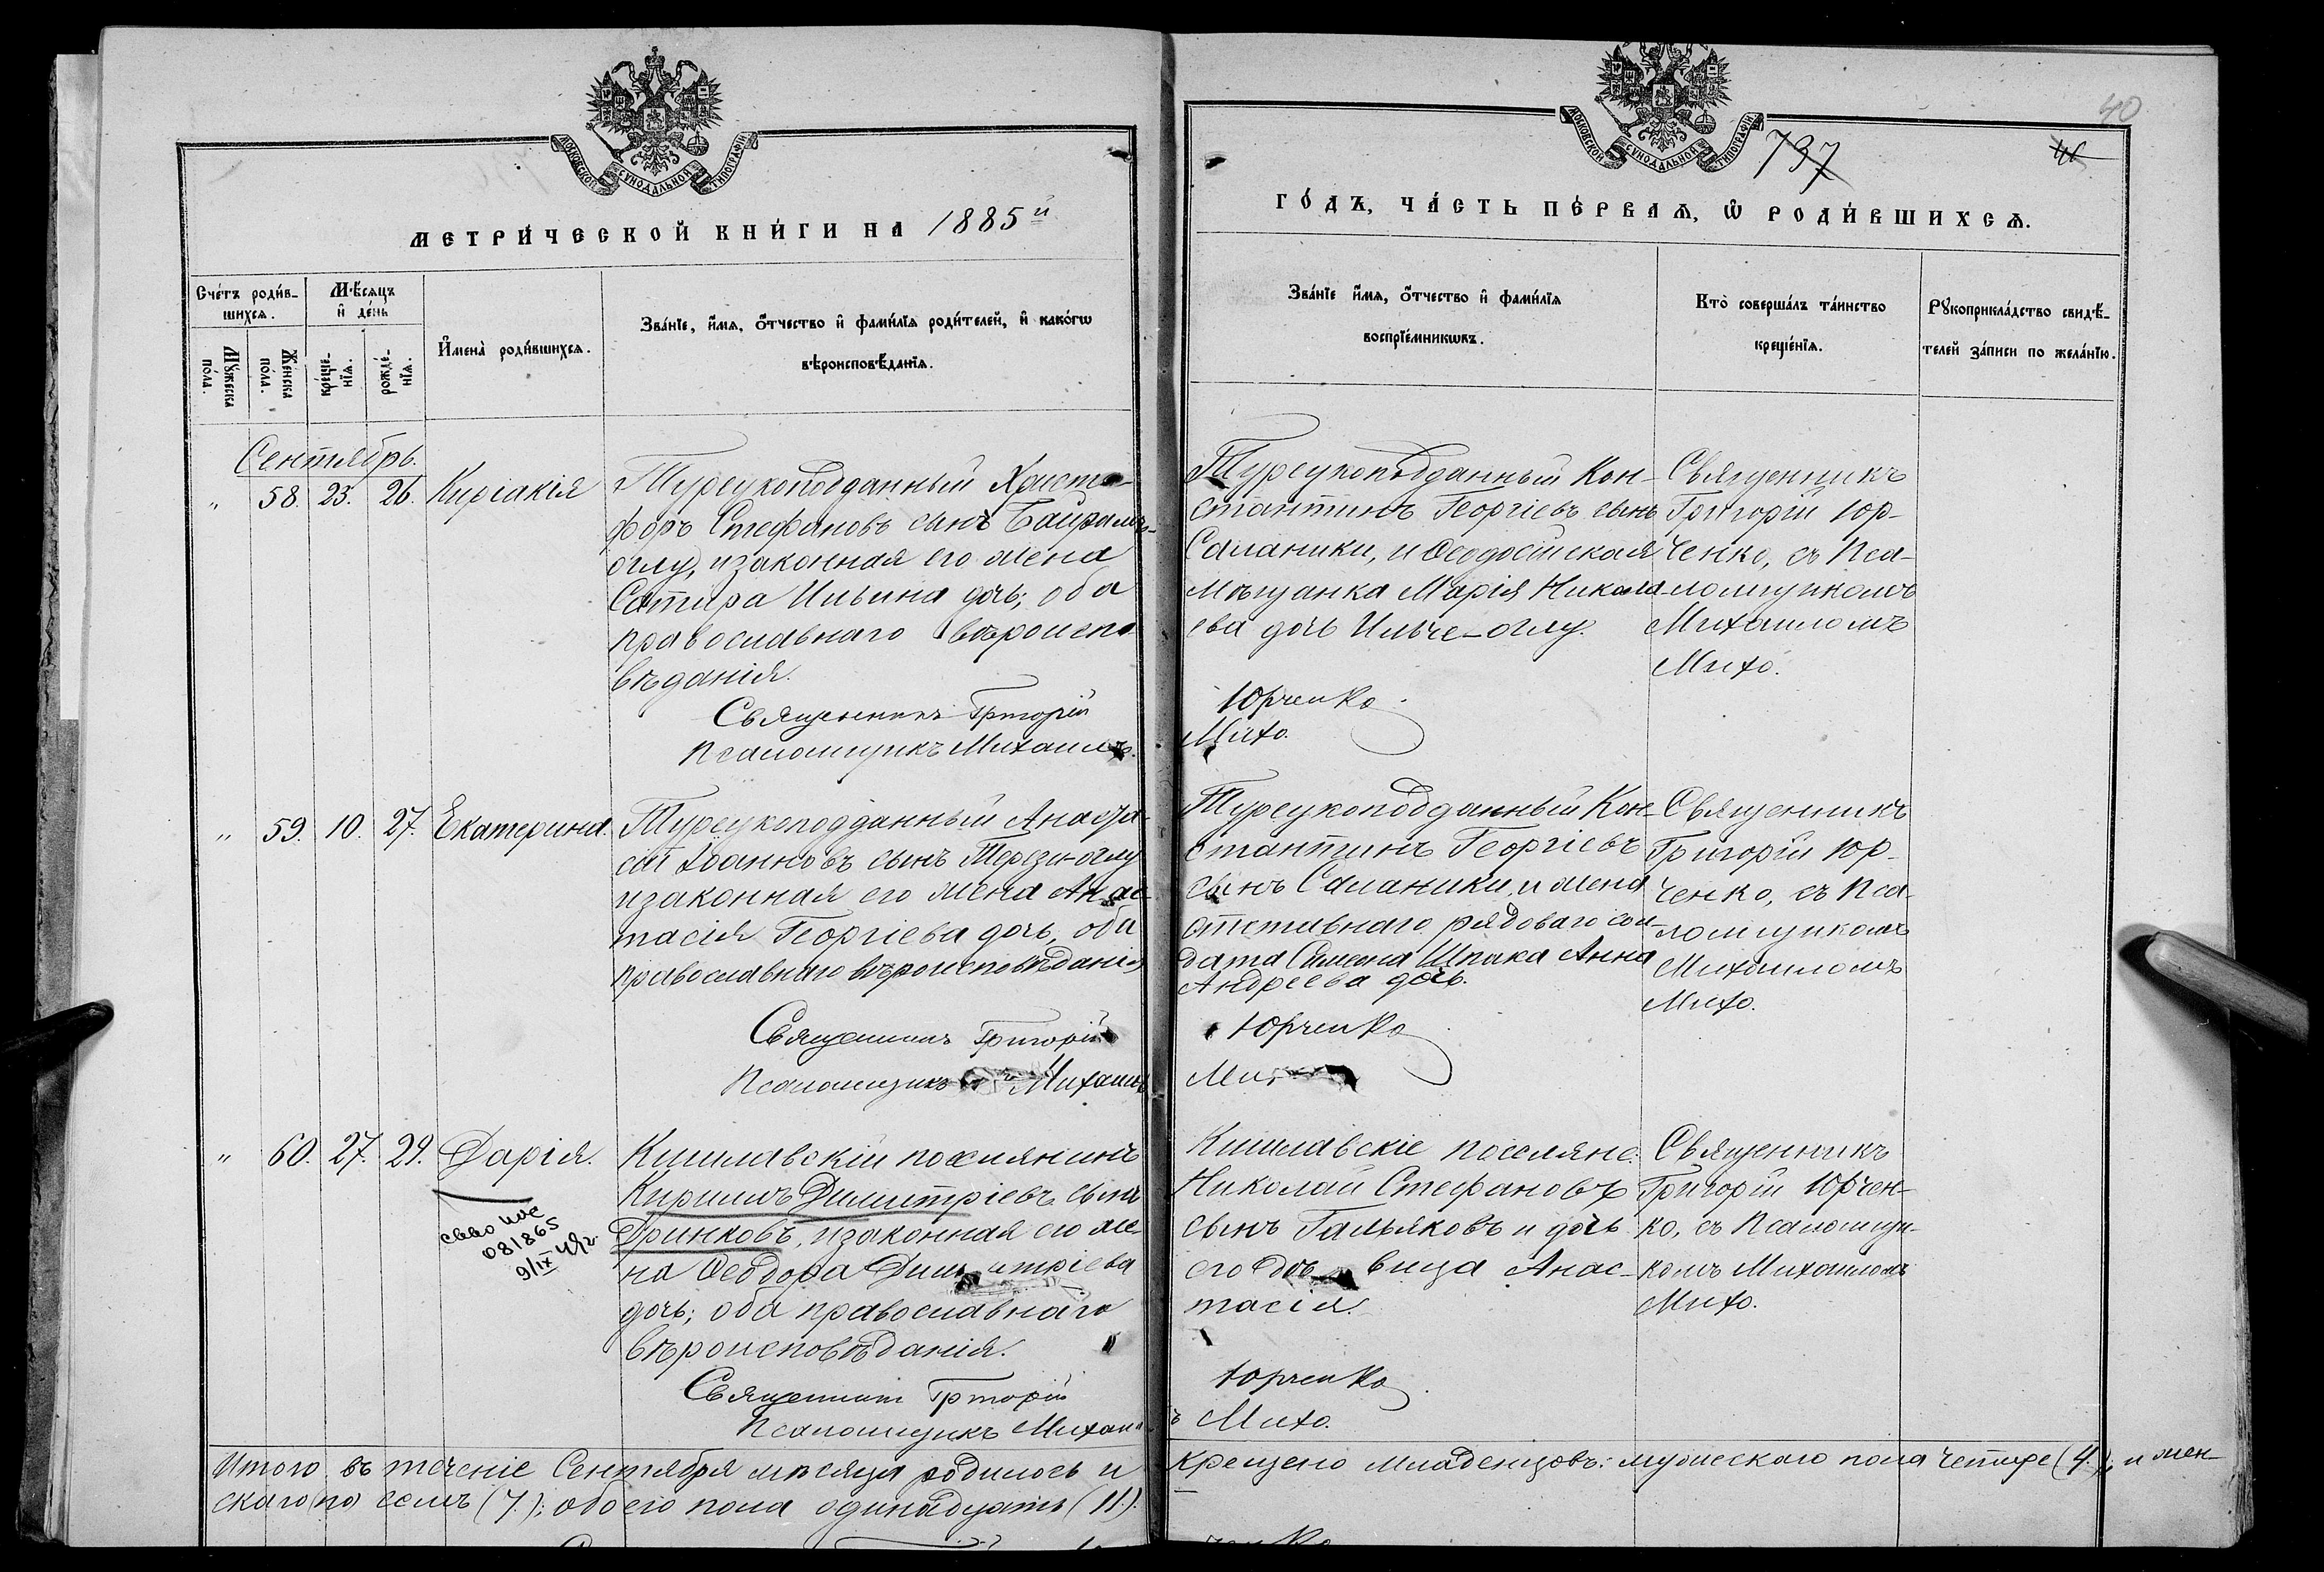 МОСКОВСКОЙ СУНОДАЛЬНОЙ ТИПОГРАФІИ
МЕТРИ́ЧЕСКОЙ КНИ́ГИ НА 1885й
Сче́тъ роди́в-
шихсѧ.
Мꙋжеска
по́ла.
Же́нска
по́ла.
Мѣ́сѧцъ
и҆ де́нь
креще́-
нїѧ.
рожде́-
нїѧ.
И҆мена̀ роди́вшихсѧ.
Зва́нїе, и҆́мѧ, ѻ҆́тчество и҆ фами́лїѧ роди́телей, и҆ како́гѡ
вѣроисповѣ́данїѧ.
Сентябрь.
" 58. 23. 26. Киріакія
Турецкоподданный Христо-
форъ Стефановъ сынъ Байрамъ-
оглу, и законная его жена
Сотира Ильина дочь; оба
православнаго вѣроиспо-
вѣданія.
Священникъ Григорій
Псаломщикъ Михаилъ
" 59. 10. 27. Екатерина.
Турецкоподданный Анаста-
сій Іоанновъ сынъ Терзи-оглу
и законная его жена Анас-
тасія Георгіева дочь, оба
православнаго вѣроисповѣданія
Священникъ Григорій
Псаломщикъ Михаилъ
" 60. 27. 29. Дарія.
081865
9/IX
Кишлавскій поселянинъ
Кириллъ Димитріевъ сынъ
Дринковъ, и законная его же-
на Ѳеодора Димитріева
дочь; оба православнаго
вѣроисповѣданія.
Священникъ Григорій
Псаломщикъ Михаилъ
Итого въ теченіе Сентября мѣсяца родилось и
скаго по семь (7.); обоего пола одинадцать (11.).
40
737
МОСКОВСКОЙ СУНОДАЛЬНОЙ ТИПОГРАФІИ
ГО́ДЪ, ЧА́СТЬ ПЕ́РВАѦ, Ѡ҆ РОДИ́ВШИХСѦ.
Зва́нїе и҆́мѧ, ѻ҆́тчество и҆ фами́лїѧ
воспрїе́мникѡвъ.
Кто̀ соверша́лъ та́инство
креще́нїѧ.
Рꙋкоприкла́дство свидѣ́-
телей за́писи по жела́нїю.
Турецкоподданный Кон-
стантинъ Георгіевъ сынъ
Саланики, и Ѳеодосійская
мѣщанка Марія Никола-
ева дочь Ильче-оглу.
Юрченко
Михо.
Священникъ
Григорій Юр-
ченко, съ Пса-
ломщикомъ
Михаиломъ
Михо.
Турецкоподданный Кон-
стантинъ Георгіевъ
сынъ Саланики, и жена
отставнаго рядоваго сол-
дата Симеона Шпака Анна
Андреева дочь.
Юрченко
Священникъ
Григорій Юр-
ченко, съ Пса-
ломщикомъ
Михаиломъ
Михо.
Кишлавскіе поселяне:
Николай Стефановъ
сынъ Гальяковъ и дочь
его дѣвица Анас-
тасія.
Юрченко
Михо.
Священникъ
Григорій Юрчен-
ко, съ Псаломщи-
комъ Михаиломъ
Михо.
крещено младенцовъ: мужескаго пола четыре (4.); и жен-